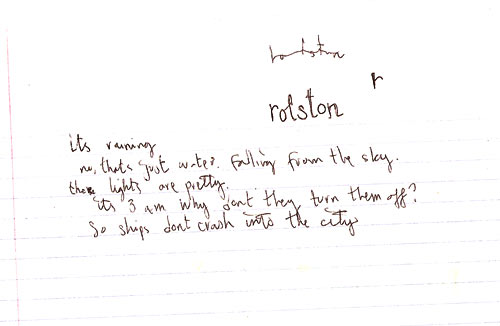 r
rolston
its raining
no, thats just water. falling from the sky.
those lights are pretty.
its 3 am why dont they turn them off?
So ships dont crash into the city